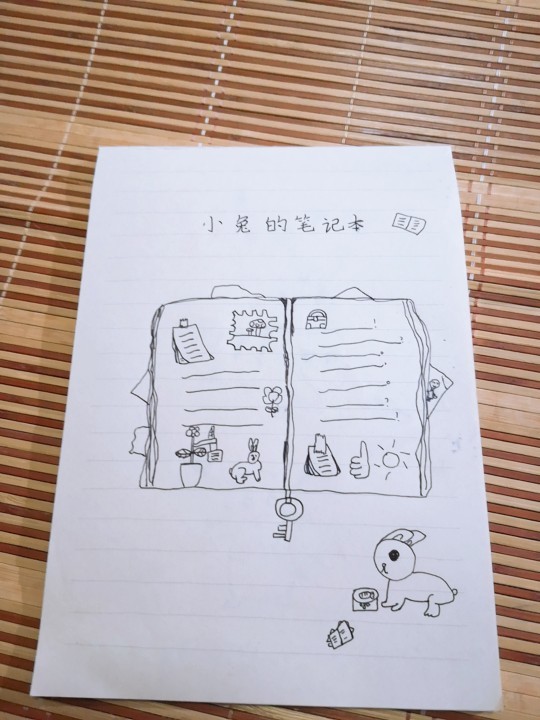 小兔的笔记本